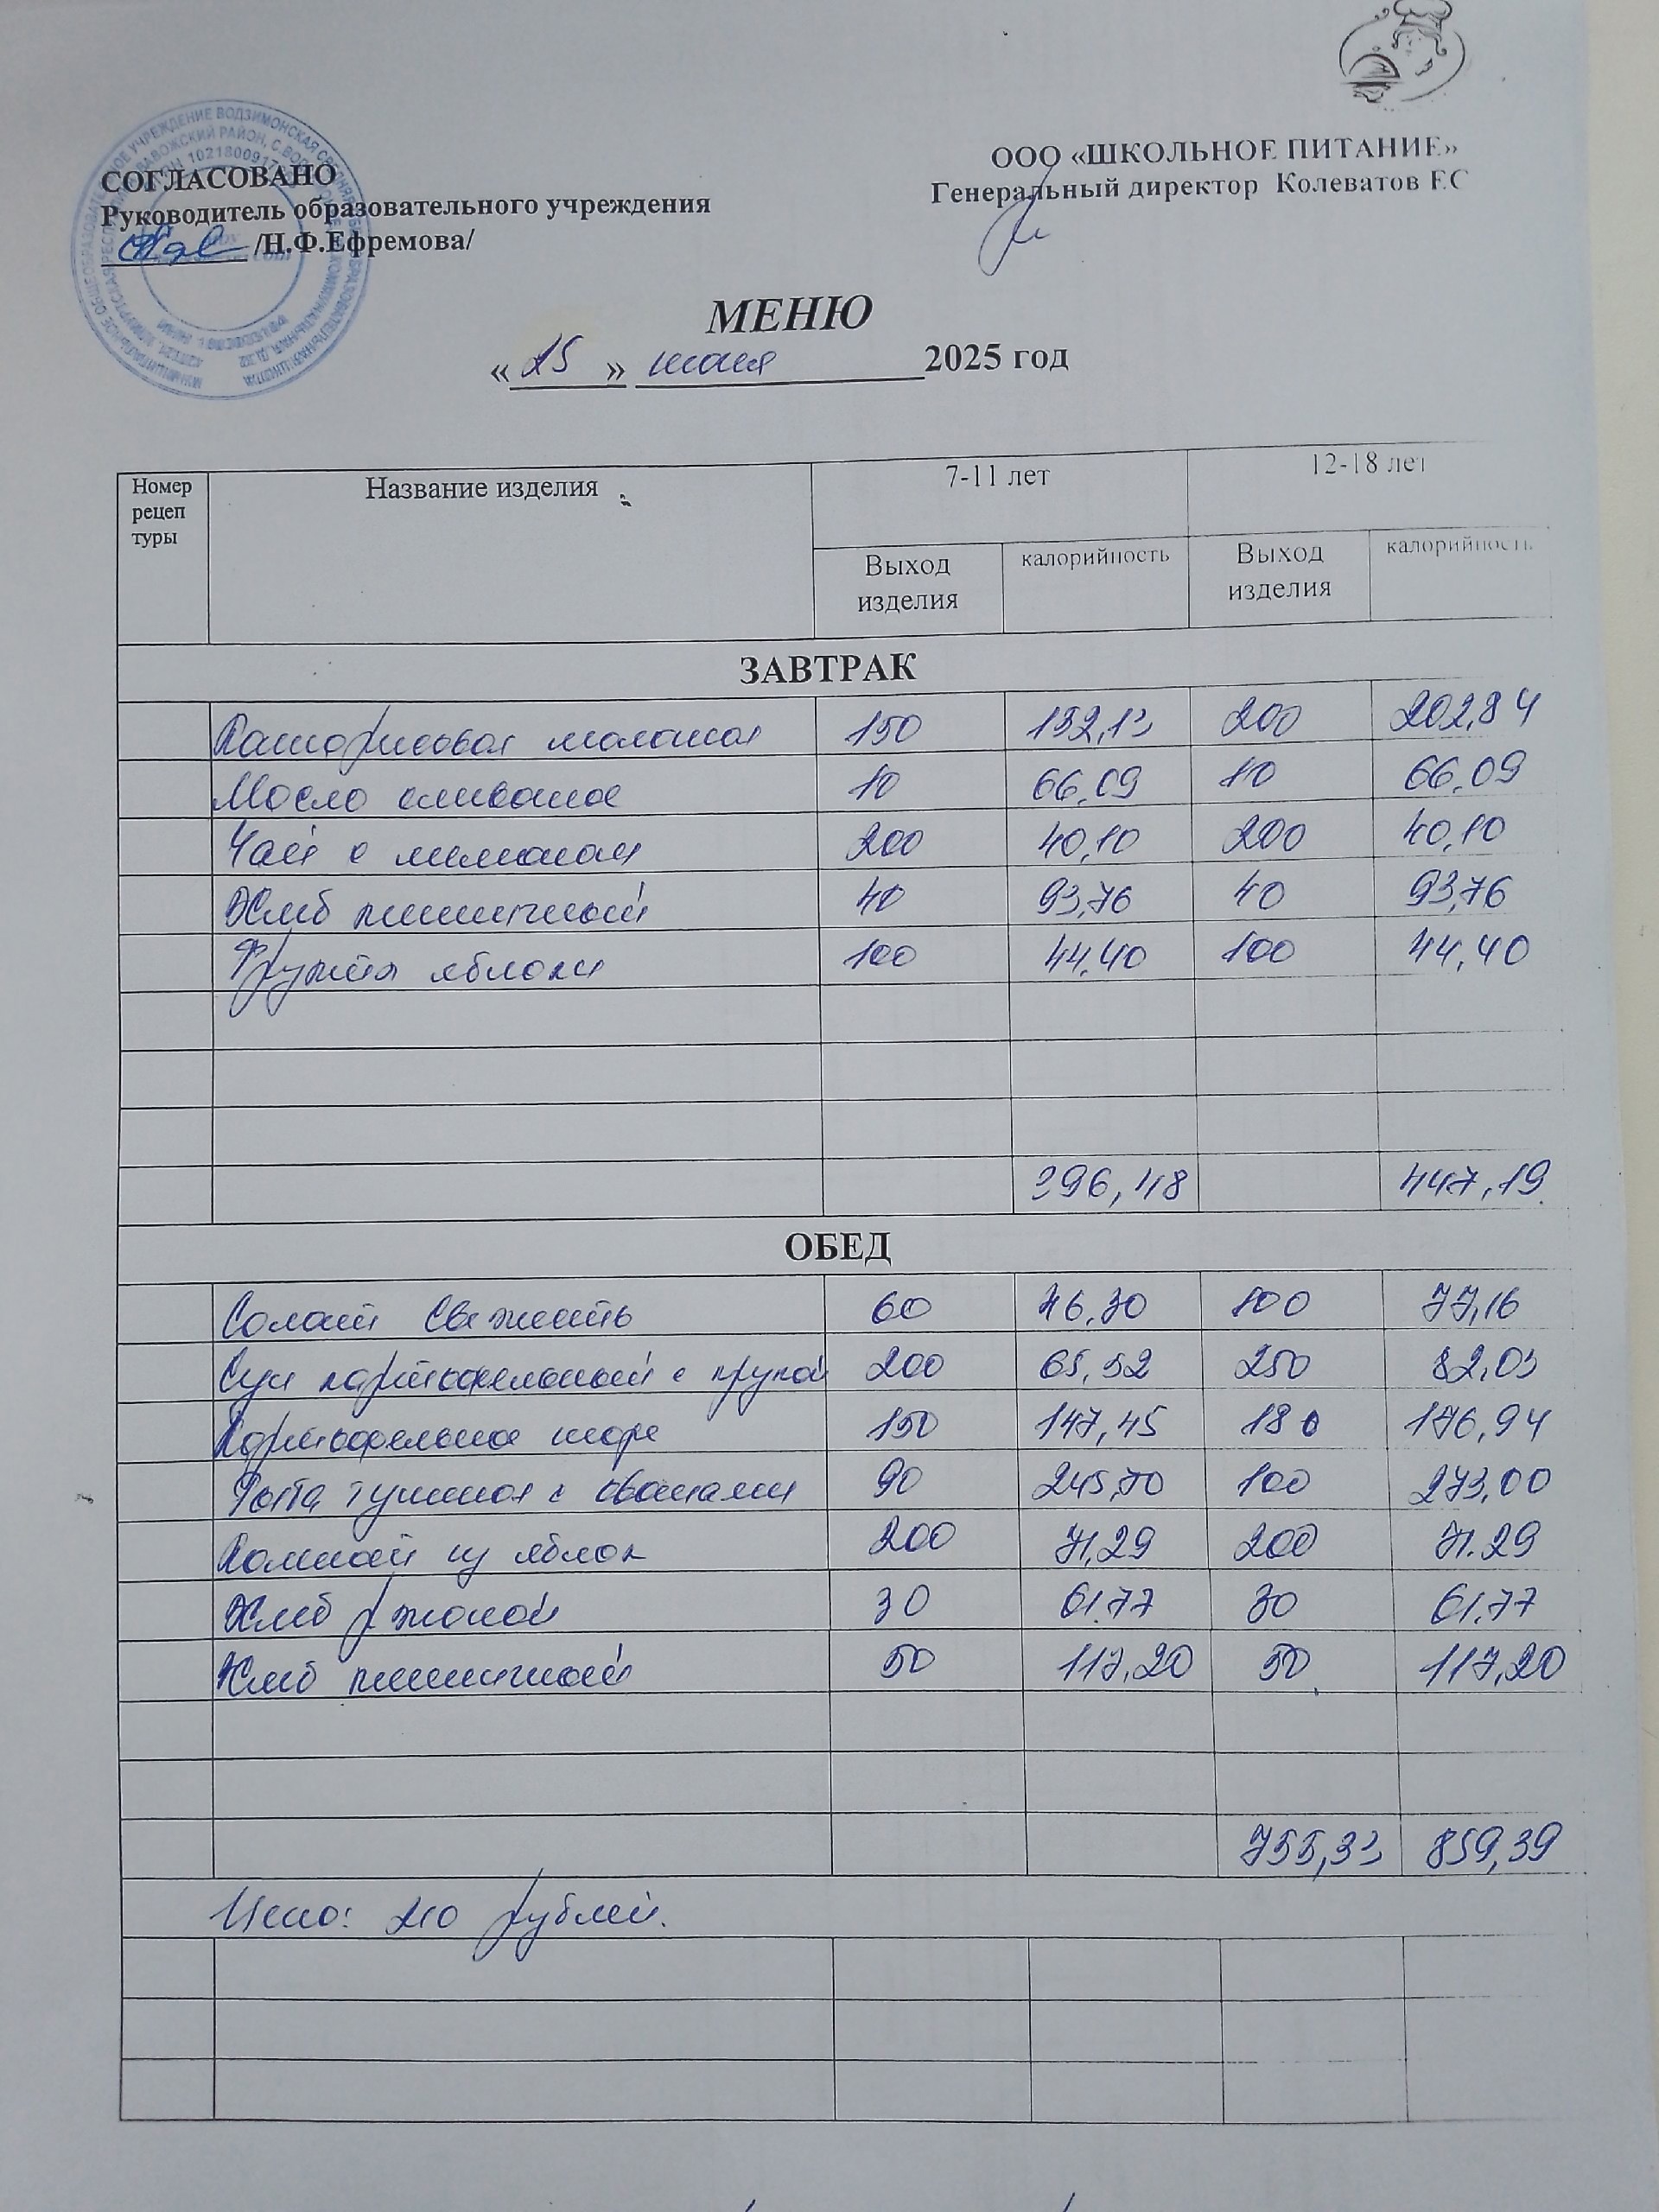 ООО «ШКОЛЬНОЕ ПИТАНИЕ»
Генеральный директор Колеватов Е.С
СОГЛАСОВАНО
Руководитель образовательного учреждения
/Н.Ф.Ефремова/
МЕНЮ
«25» июня 2025 год
Номер рецептуры Название изделия 7-11 лет 12-18 лет
Выход изделия калорийность Выход изделия калорийность
ЗАВТРАК
Каша рисовая молочная 150 152,13 200 202,84
Масло сливочное 10 66,09 10 66,09
Чай с лимоном 200 40,10 200 40,10
Хлеб пшеничный 40 93,76 40 93,76
Фрукты яблоки 100 44,40 100 44,40
396,48 447,19
ОБЕД
Салат Свежесть 60 46,30 100 77,16
Суп картофельный с крупой 200 65,52 250 82,03
Картофельное пюре 150 147,45 180 176,94
тушеная с овощами 90 245,70 100 273,00
Компот из яблок 200 71,29 200 71.29
Хлеб ржаной 30 61.77 30 61.77
Хлеб пшеничный 50 117,20 50 117,20
755,33 859,39
Цена: 210 рублей.